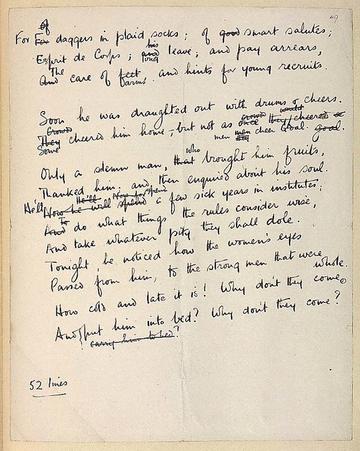 of 49
For Fan daggers in plaid socks; of good smart salutes;
his
Esprit de Corps; and long leave; and pay arrears,
The arms
And care of feet and hints for young recruits.
Soon he was draughted out with drums & cheers.
Crowds would
They cheered him home, but not as once they cheer a
Some men men cheer Goal. goal.
who
Only a solemn man, that brought him fruits,
Thanked him; and then enquired about his soul.
He'll spend
He'll Now he will spend a few sick years in institutes.
To
And do what things the rules consider wise,
And take whatever pity they shall dole.
Tonight he noticed how the women's eyes
Passed from him, to the strong men that were whole.
How cold and late it is! Why don't they come
And put him into bed? Why don't they come?
carry him to bed?
52 lines